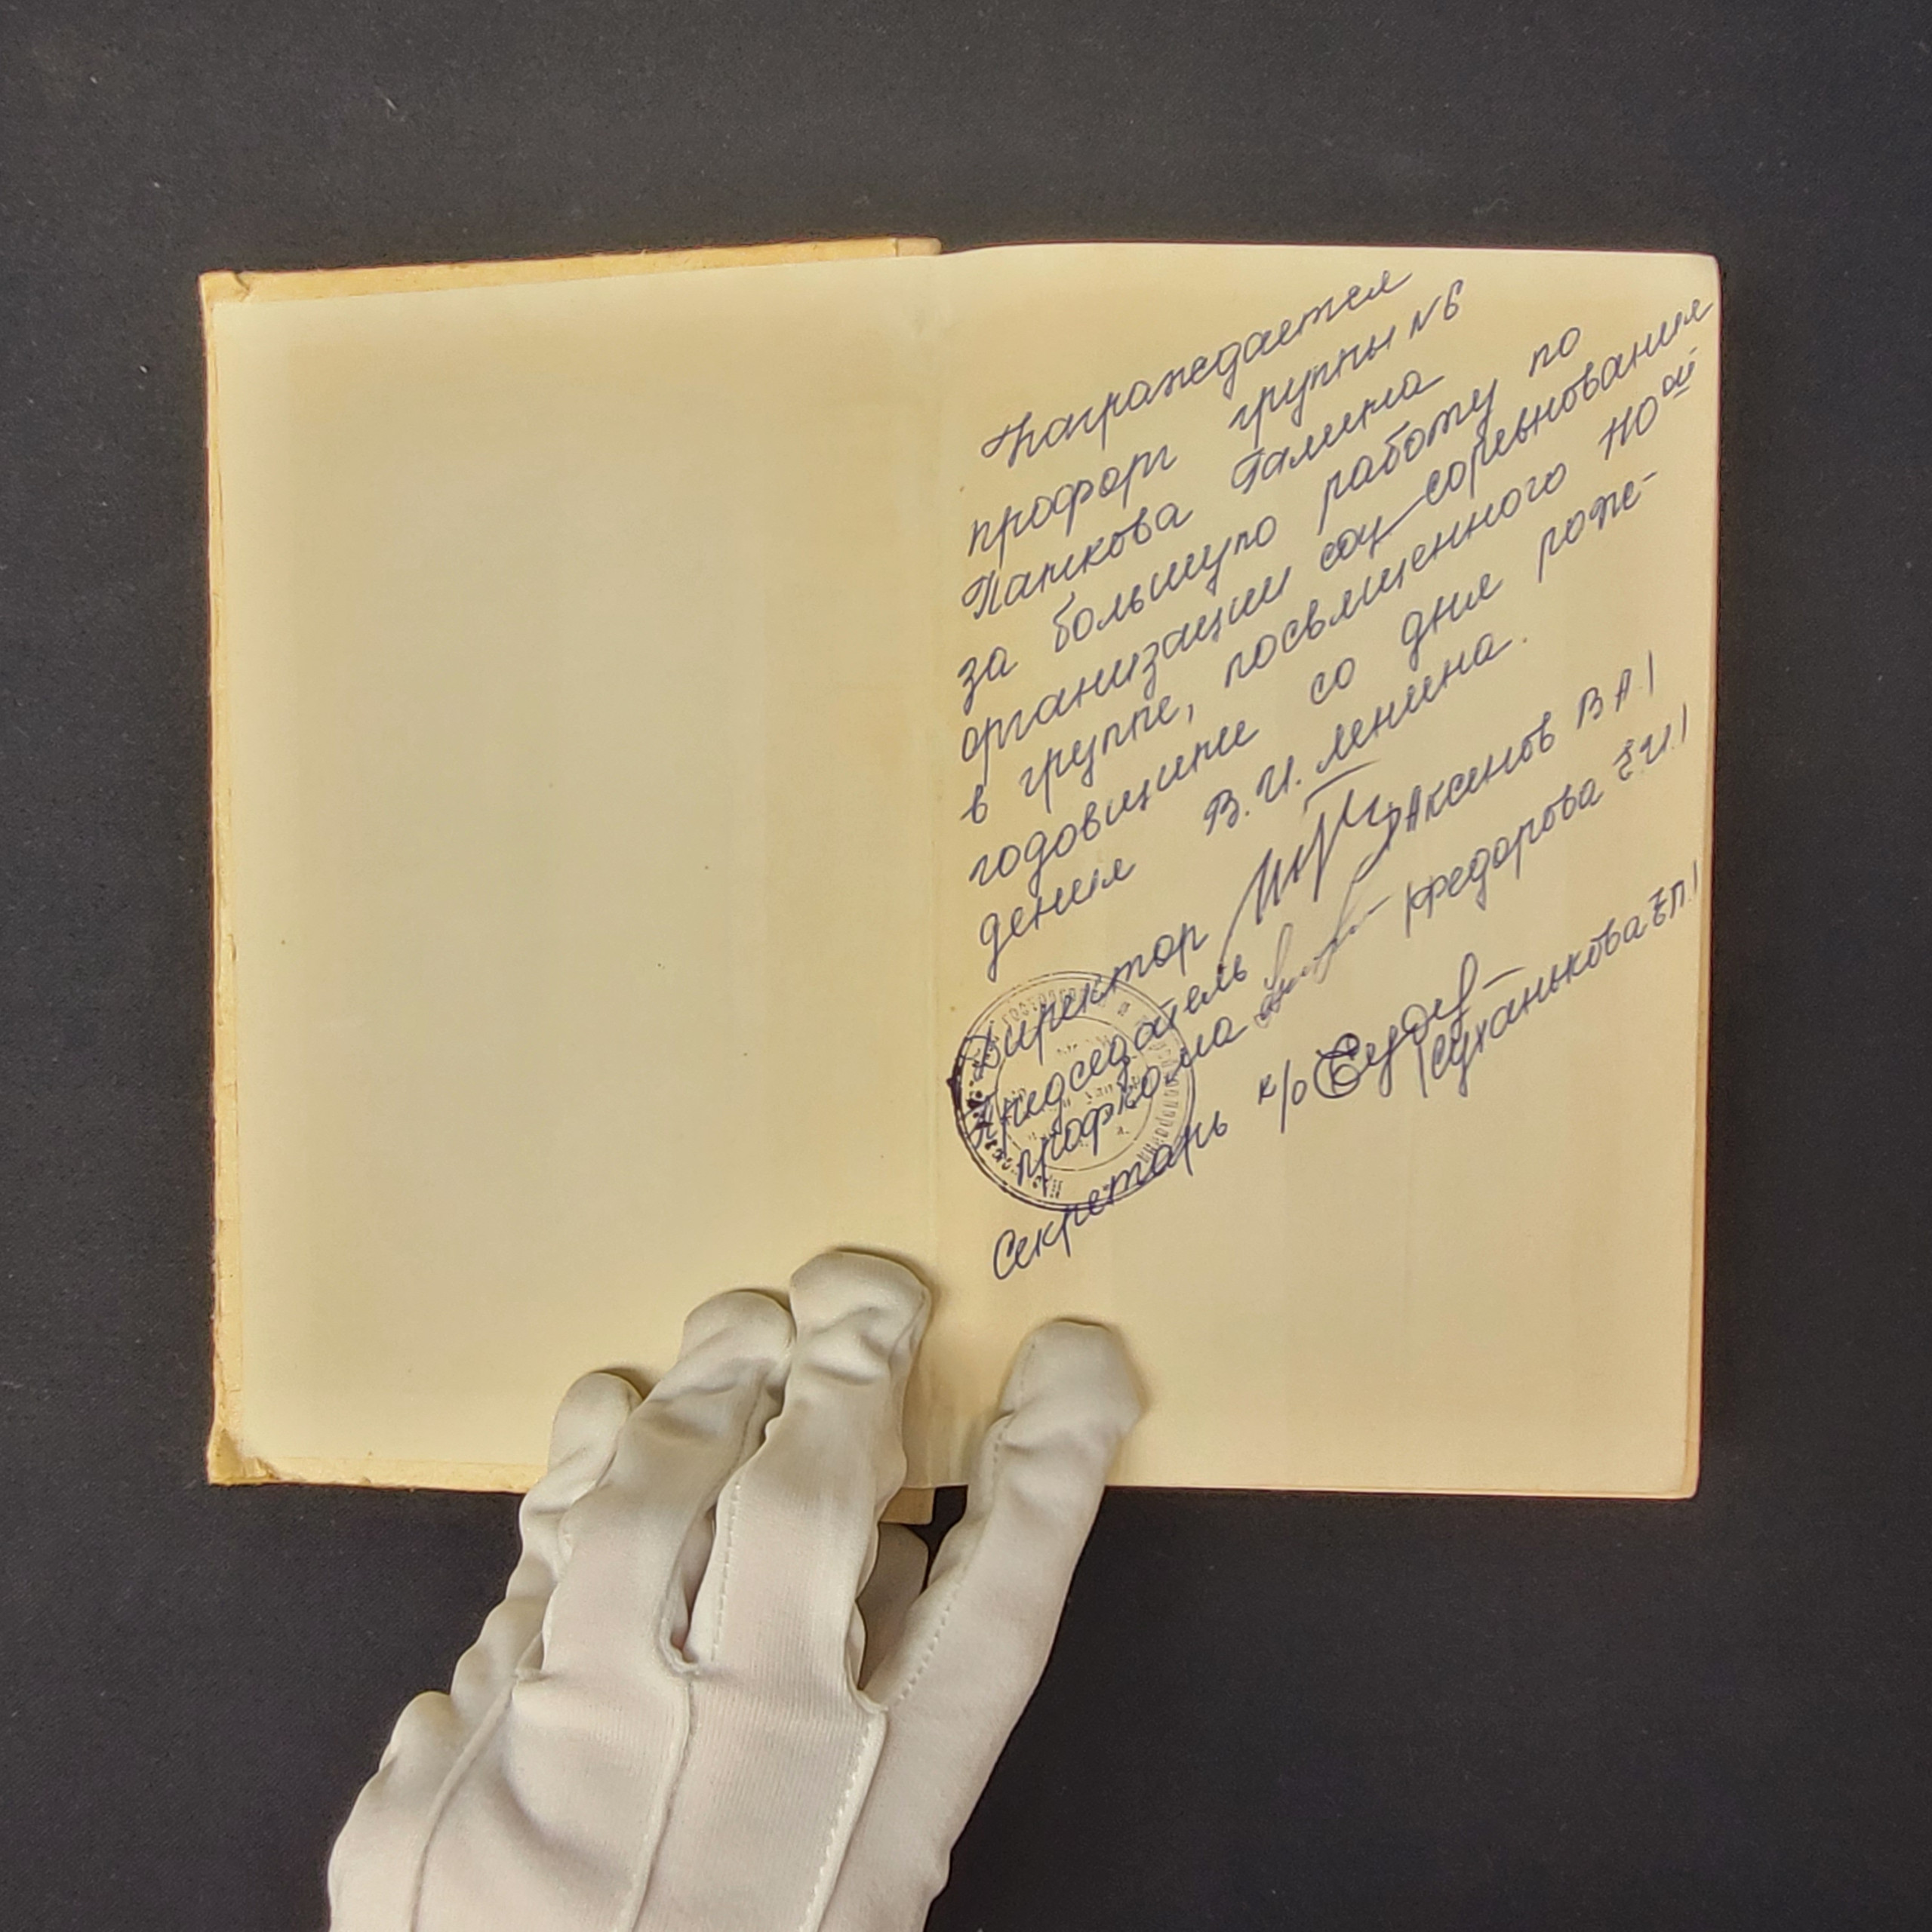 Награждается
профорг группы №6
Пашкова Галина
за большую работу по
организации соц-соревнования
в группе, посвященного 110ой
годовщине со дня рож-
дения В.И. Ленина.
Директор /Аксенов В А/
Председатель
профкома /Федорова Е.И./
Секретарь к/о /Суханькова Е П./